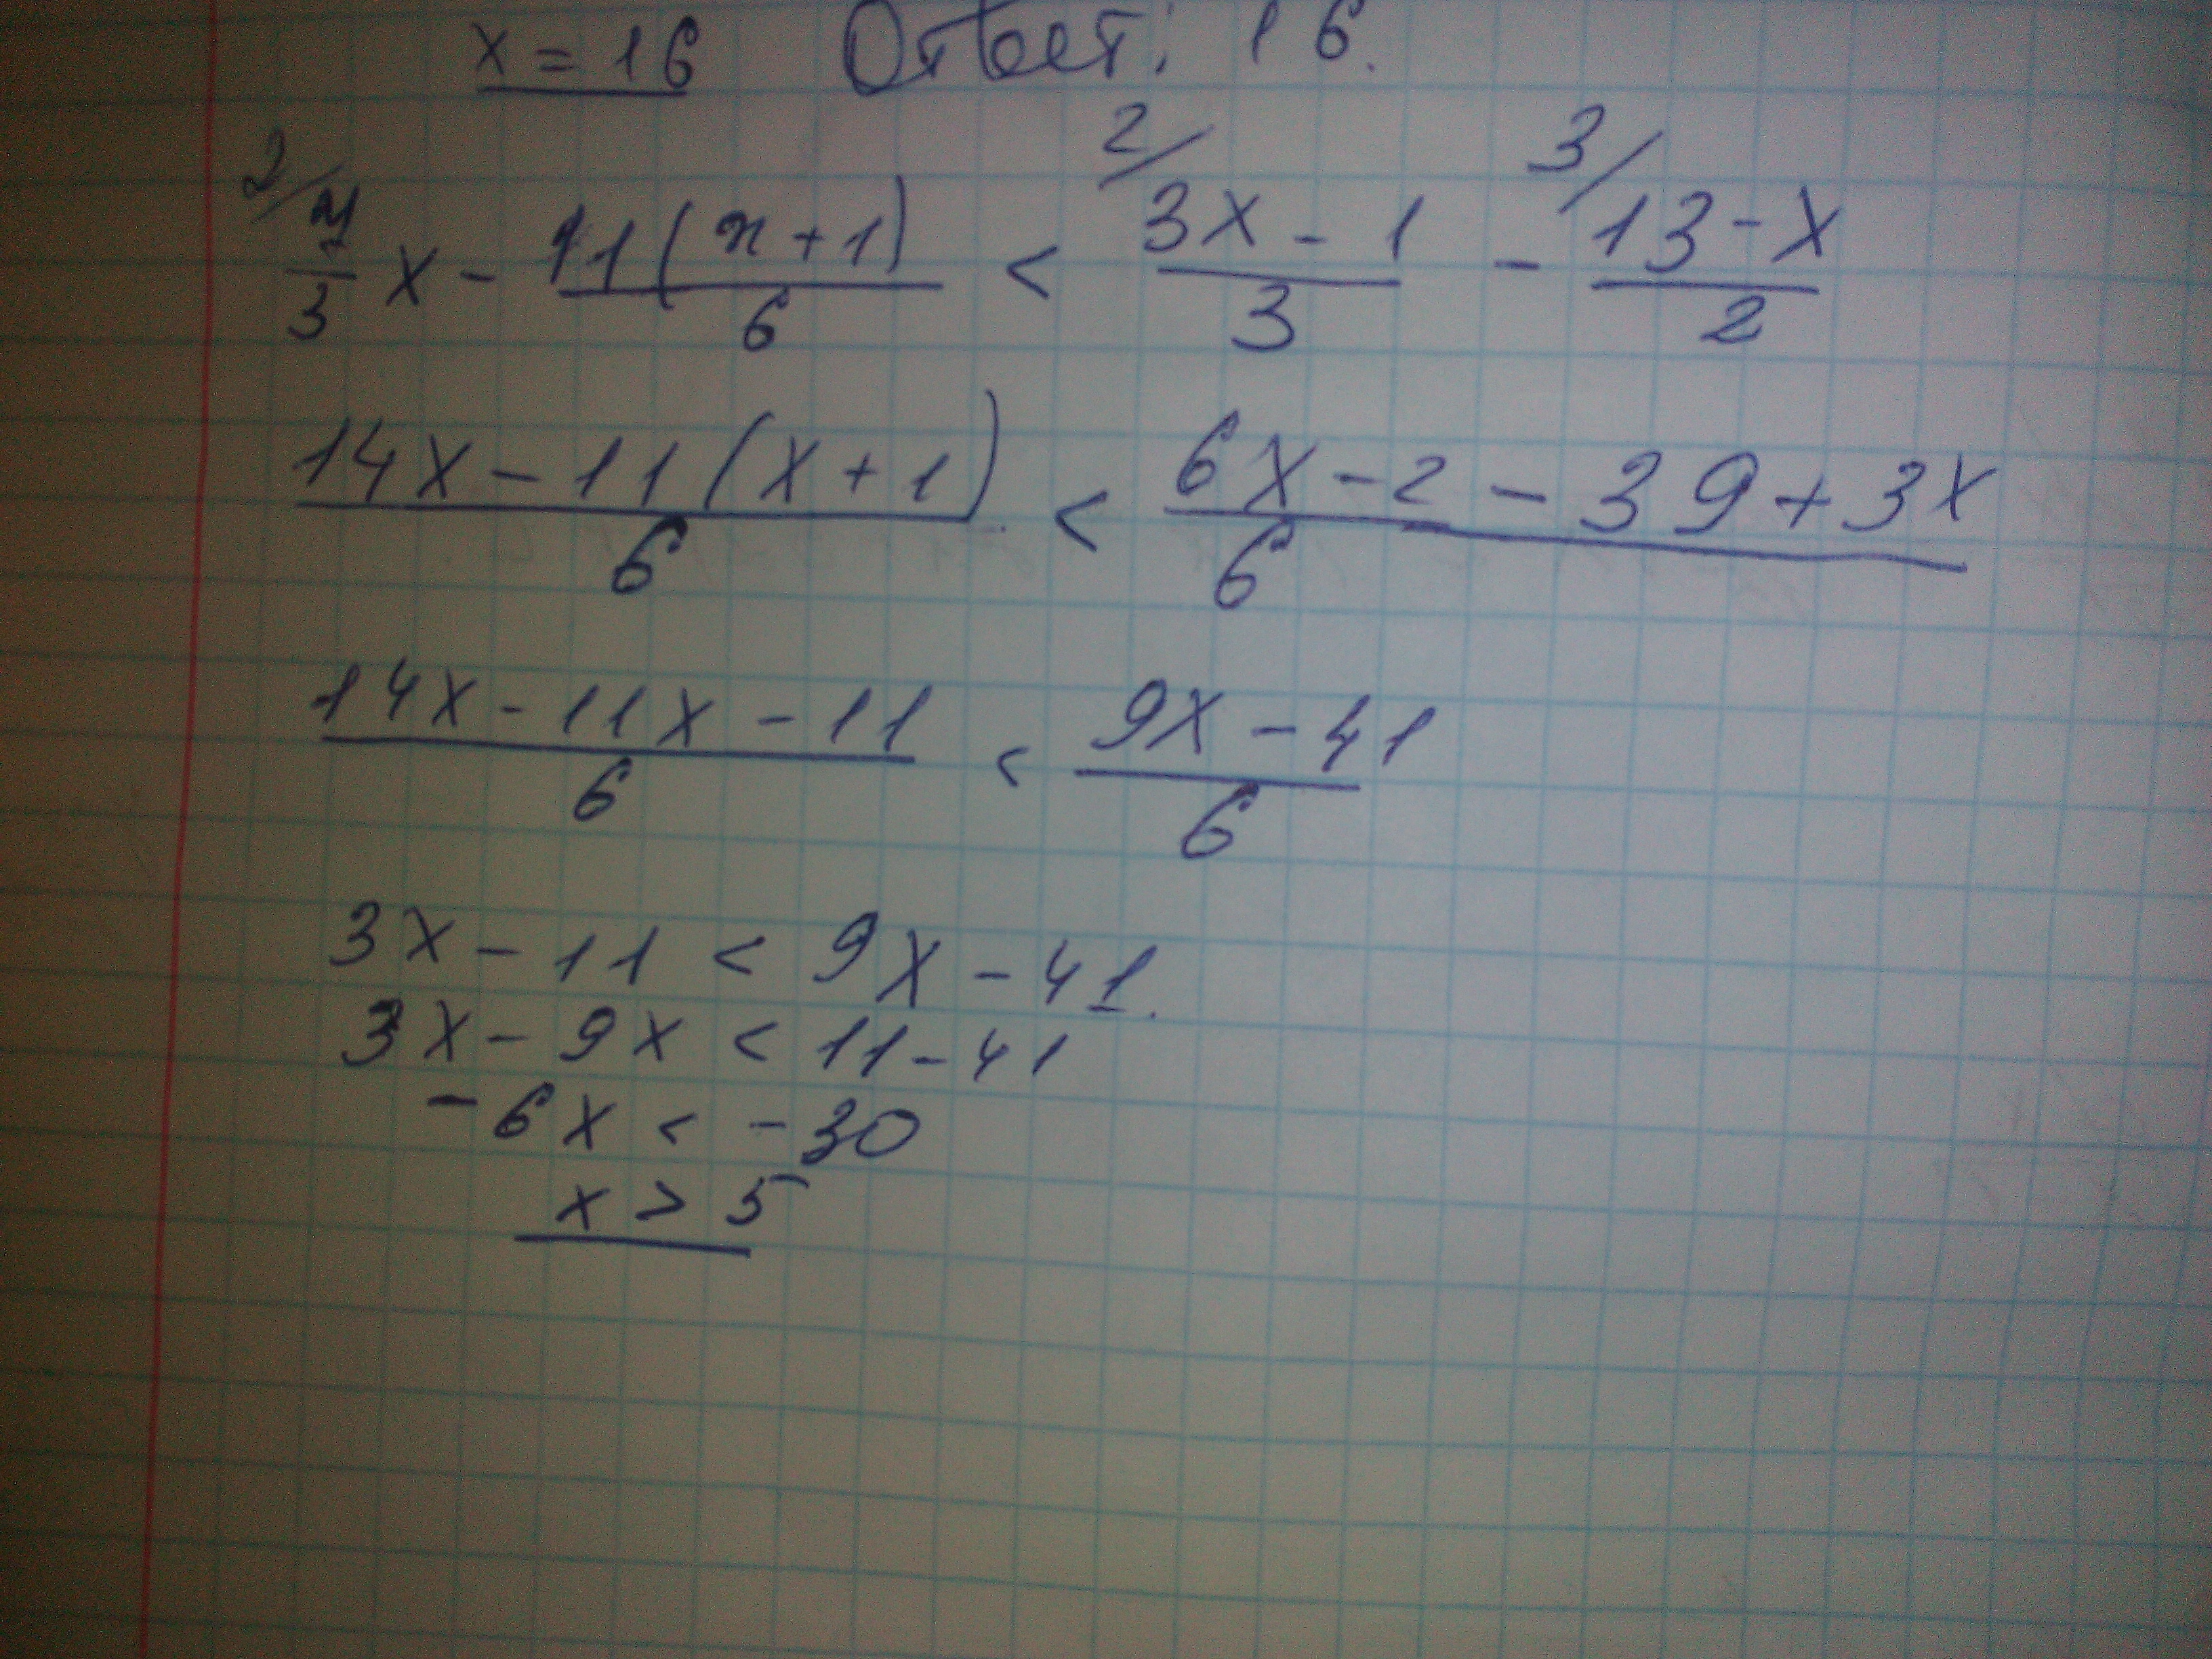 x = 16 Ответ: 16.
2/ 7/3 x - 11(x+1)/6 < 2/ 3x-1/3 - 3/ 13-x/2
14x-11(x+1)/6 < 6x-2-39+3x/6
14x-11x-11/6 < 9x-41/6
3x-11 < 9x-41.
3x-9x < 11-41
-6x < -30
x > 5